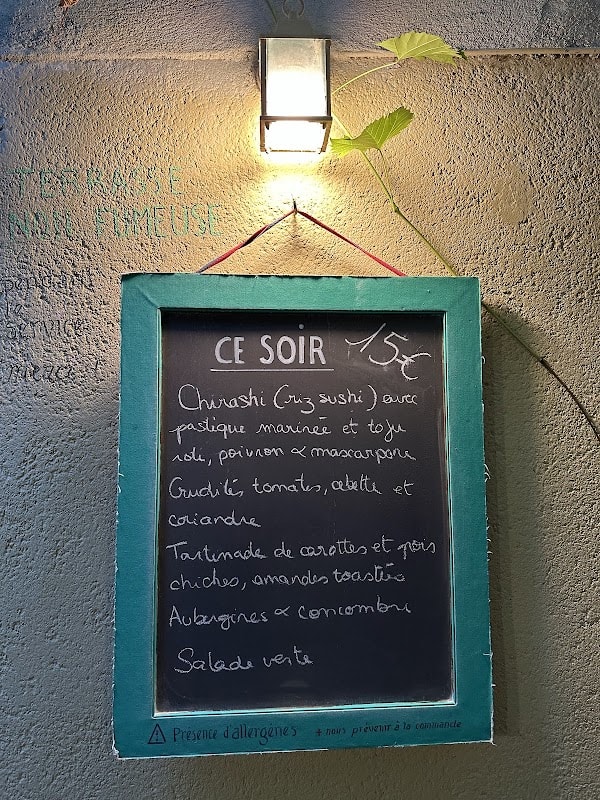 TERRASSE
NON FUMEUSE
pendant
le
service
merci !
CE SOIR 15€
Chirashi (riz sushi) avec
pastèque marinée et tofu
roti, poivron & mascarpone
Crudités tomates, cébette et
coriandre
Tartinade de carottes et pois
chiches, amandes toastées
Aubergines & concombre
Salade verte
⚠ Présence d'allergènes + nous prévenir à la commande